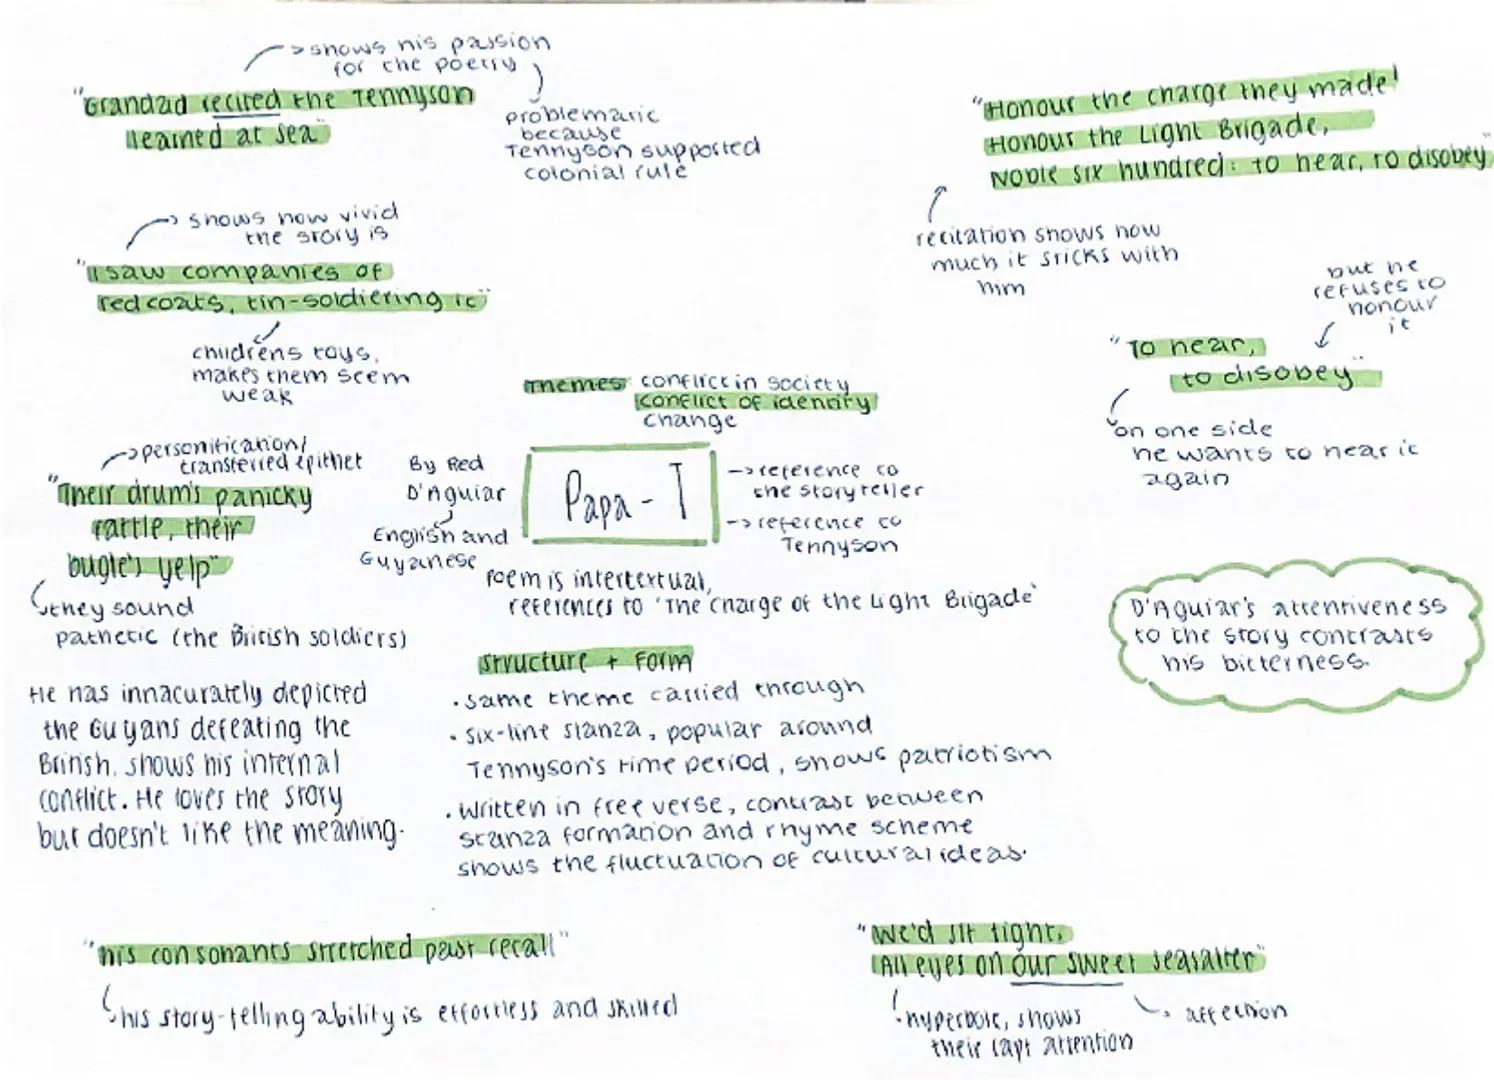 → shows his passion
for the poetry
"Grandad recited the Tennyson
learned at sea"
problematic
because
Tennyson supported
colonial rule
→ shows how vivid
the story is
"I saw companies of
redcoats, tin-soldiering it"
childrens toys,
makes them seem
weak
→ personification/
transferred epithet
"Their drum's panicky
rattle, their
bugle's yelp"
they sound
pathetic (the British soldiers)
He has innacurately depicted
the Guyans defeating the
British, shows his internal
conflict. He loves the story
but doesn't like the meaning.
Themes: conflict in society
conflict of identity
change
By Red
D'Aguiar
English and
Guyanese
Papa-T
→ reference to
the storyteller
→ reference to
Tennyson
Poem is intertextual,
references to 'The Charge of the Light Brigade'
Structure + Form
• same theme carried through
• Six-line stanza, popular around
Tennyson's time period, shows patriotism
• Written in free verse, contrast between
stanza formation and rhyme scheme
shows the fluctuation of cultural ideas.
"Honour the charge they made!
Honour the Light Brigade,
Noble six hundred: to hear, to disobey"
recitation shows how
much it sticks with
him
but he
refuses to
honour
it
"To hear,
to disobey"
on one side
he wants to hear it
again
D'Aguiar's attentiveness
to the story contrasts
his bitterness.
"his consonants stretched past recall"
his story-telling ability is effortless and skilled
"We'd sit tight,
All eyes on our sweet seasalter"
hyperbole, shows
their rapt attention
→ affection